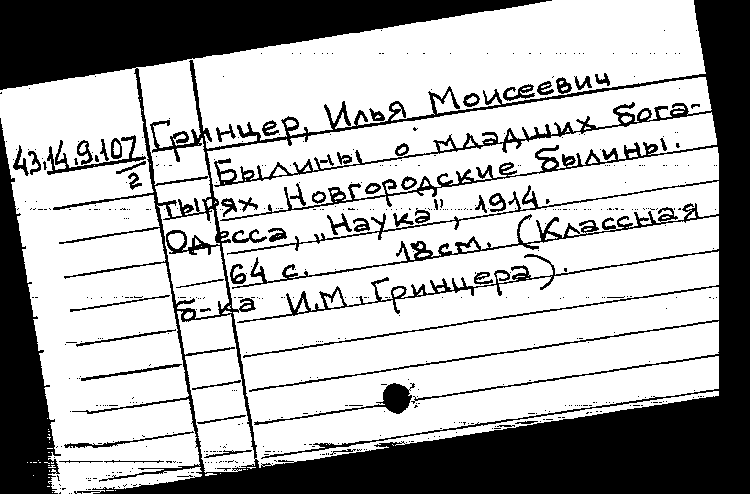 43.14.9.107/2
Гринцер, Илья Моисеевич
Былины о младших бога-
тырях. Новгородские былины.
Одесса, „Наука", 1914.
64 с. 18 см. (Классная
б-ка И.М. Гринцера).